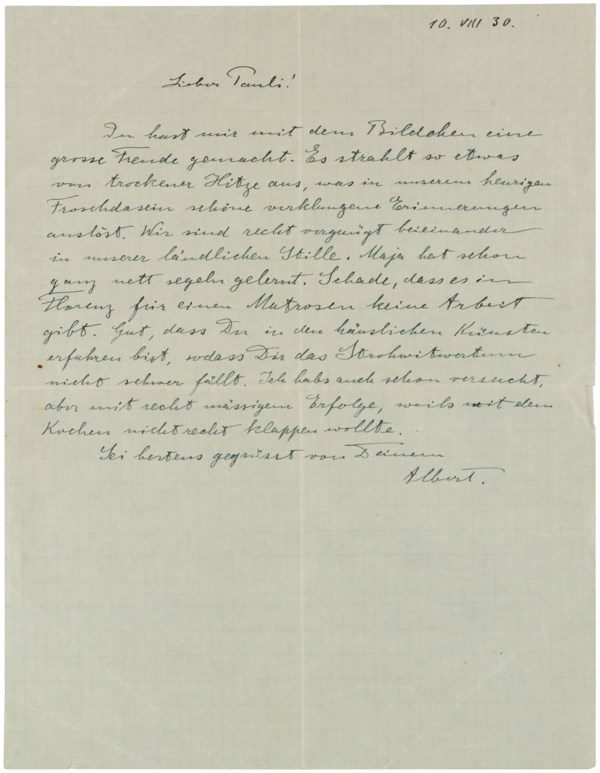 10. VIII 30.
Lieber Pauli!
Du hast mir mit dem Bildchen eine
grosse Freude gemacht. Es strahlt so etwas
von trockener Hitze aus, was in unserem heurigen
Froschdasein schöne verklungene Erinnerungen
auslöst. Wir sind recht vergnügt beieinander
in unserer ländlichen Stille. Maja hat schon
ganz nett segeln gelernt. Schade, dass es in
Florenz für einen Matrosen keine Arbeit
gibt. Gut, dass Du in den häuslichen Künsten
erfahren bist, sodass Dir das Strohwitwertum
nicht schwer fällt. Ich habs auch schon versucht,
aber mit recht mässigem Erfolge, weils mit dem
Kochen nicht recht klappen wollte.
Sei bestens gegrüsst von Deinem
Albert.